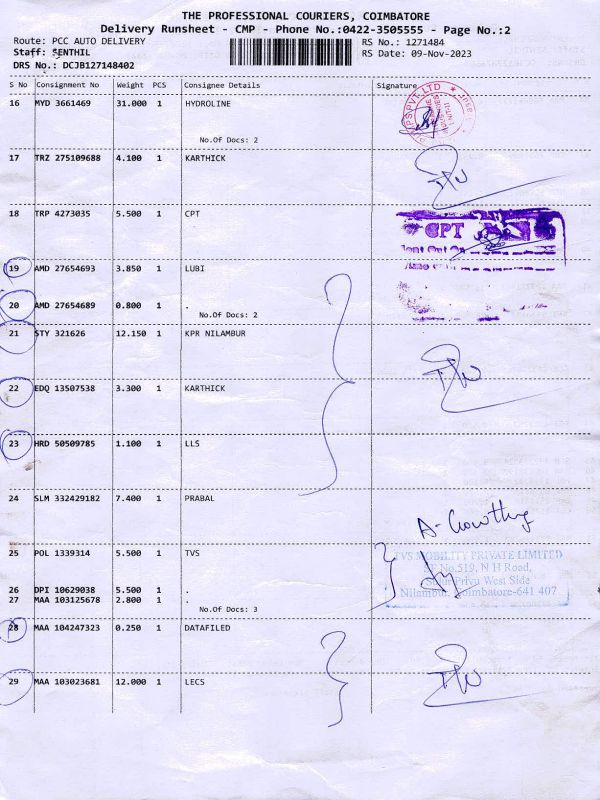 THE PROFESSIONAL COURIERS, COIMBATORE
Delivery Runsheet - CMP - Phone No.:0422-3505555 - Page No.:2
Route: PCC AUTO DELIVERY RS No.: 1271484
Staff: SENTHIL RS Date: 09-Nov-2023
DRS No.: DCJB127148402
S No Consignment No Weight PCS Consignee Details Signature
16 MYD 3661469 31.000 1 HYDROLINE
No.Of Docs: 2
17 TRZ 275109688 4.100 1 KARTHICK
18 TRP 4273035 5.500 1 CPT
CPT
19 AMD 27654693 3.850 1 LUBI
20 AMD 27654689 0.800 1 .
No.Of Docs: 2
21 STY 321626 12.150 1 KPR NILAMBUR
22 EDQ 13507538 3.300 1 KARTHICK
23 HRD 50509785 1.100 1 LLS
24 SLM 332429182 7.400 1 PRABAL
25 POL 1339314 5.500 1 TVS
TVS MOBILITY PRIVATE LIMITED
SF No.519, N H Road,
Privu West Side
Nilambur, Coimbatore-641 407
26 DPI 10629038 5.500 1 .
27 MAA 103125678 2.800 1 .
No.Of Docs: 3
28 MAA 104247323 0.250 1 DATAFILED
29 MAA 103023681 12.000 1 LECS